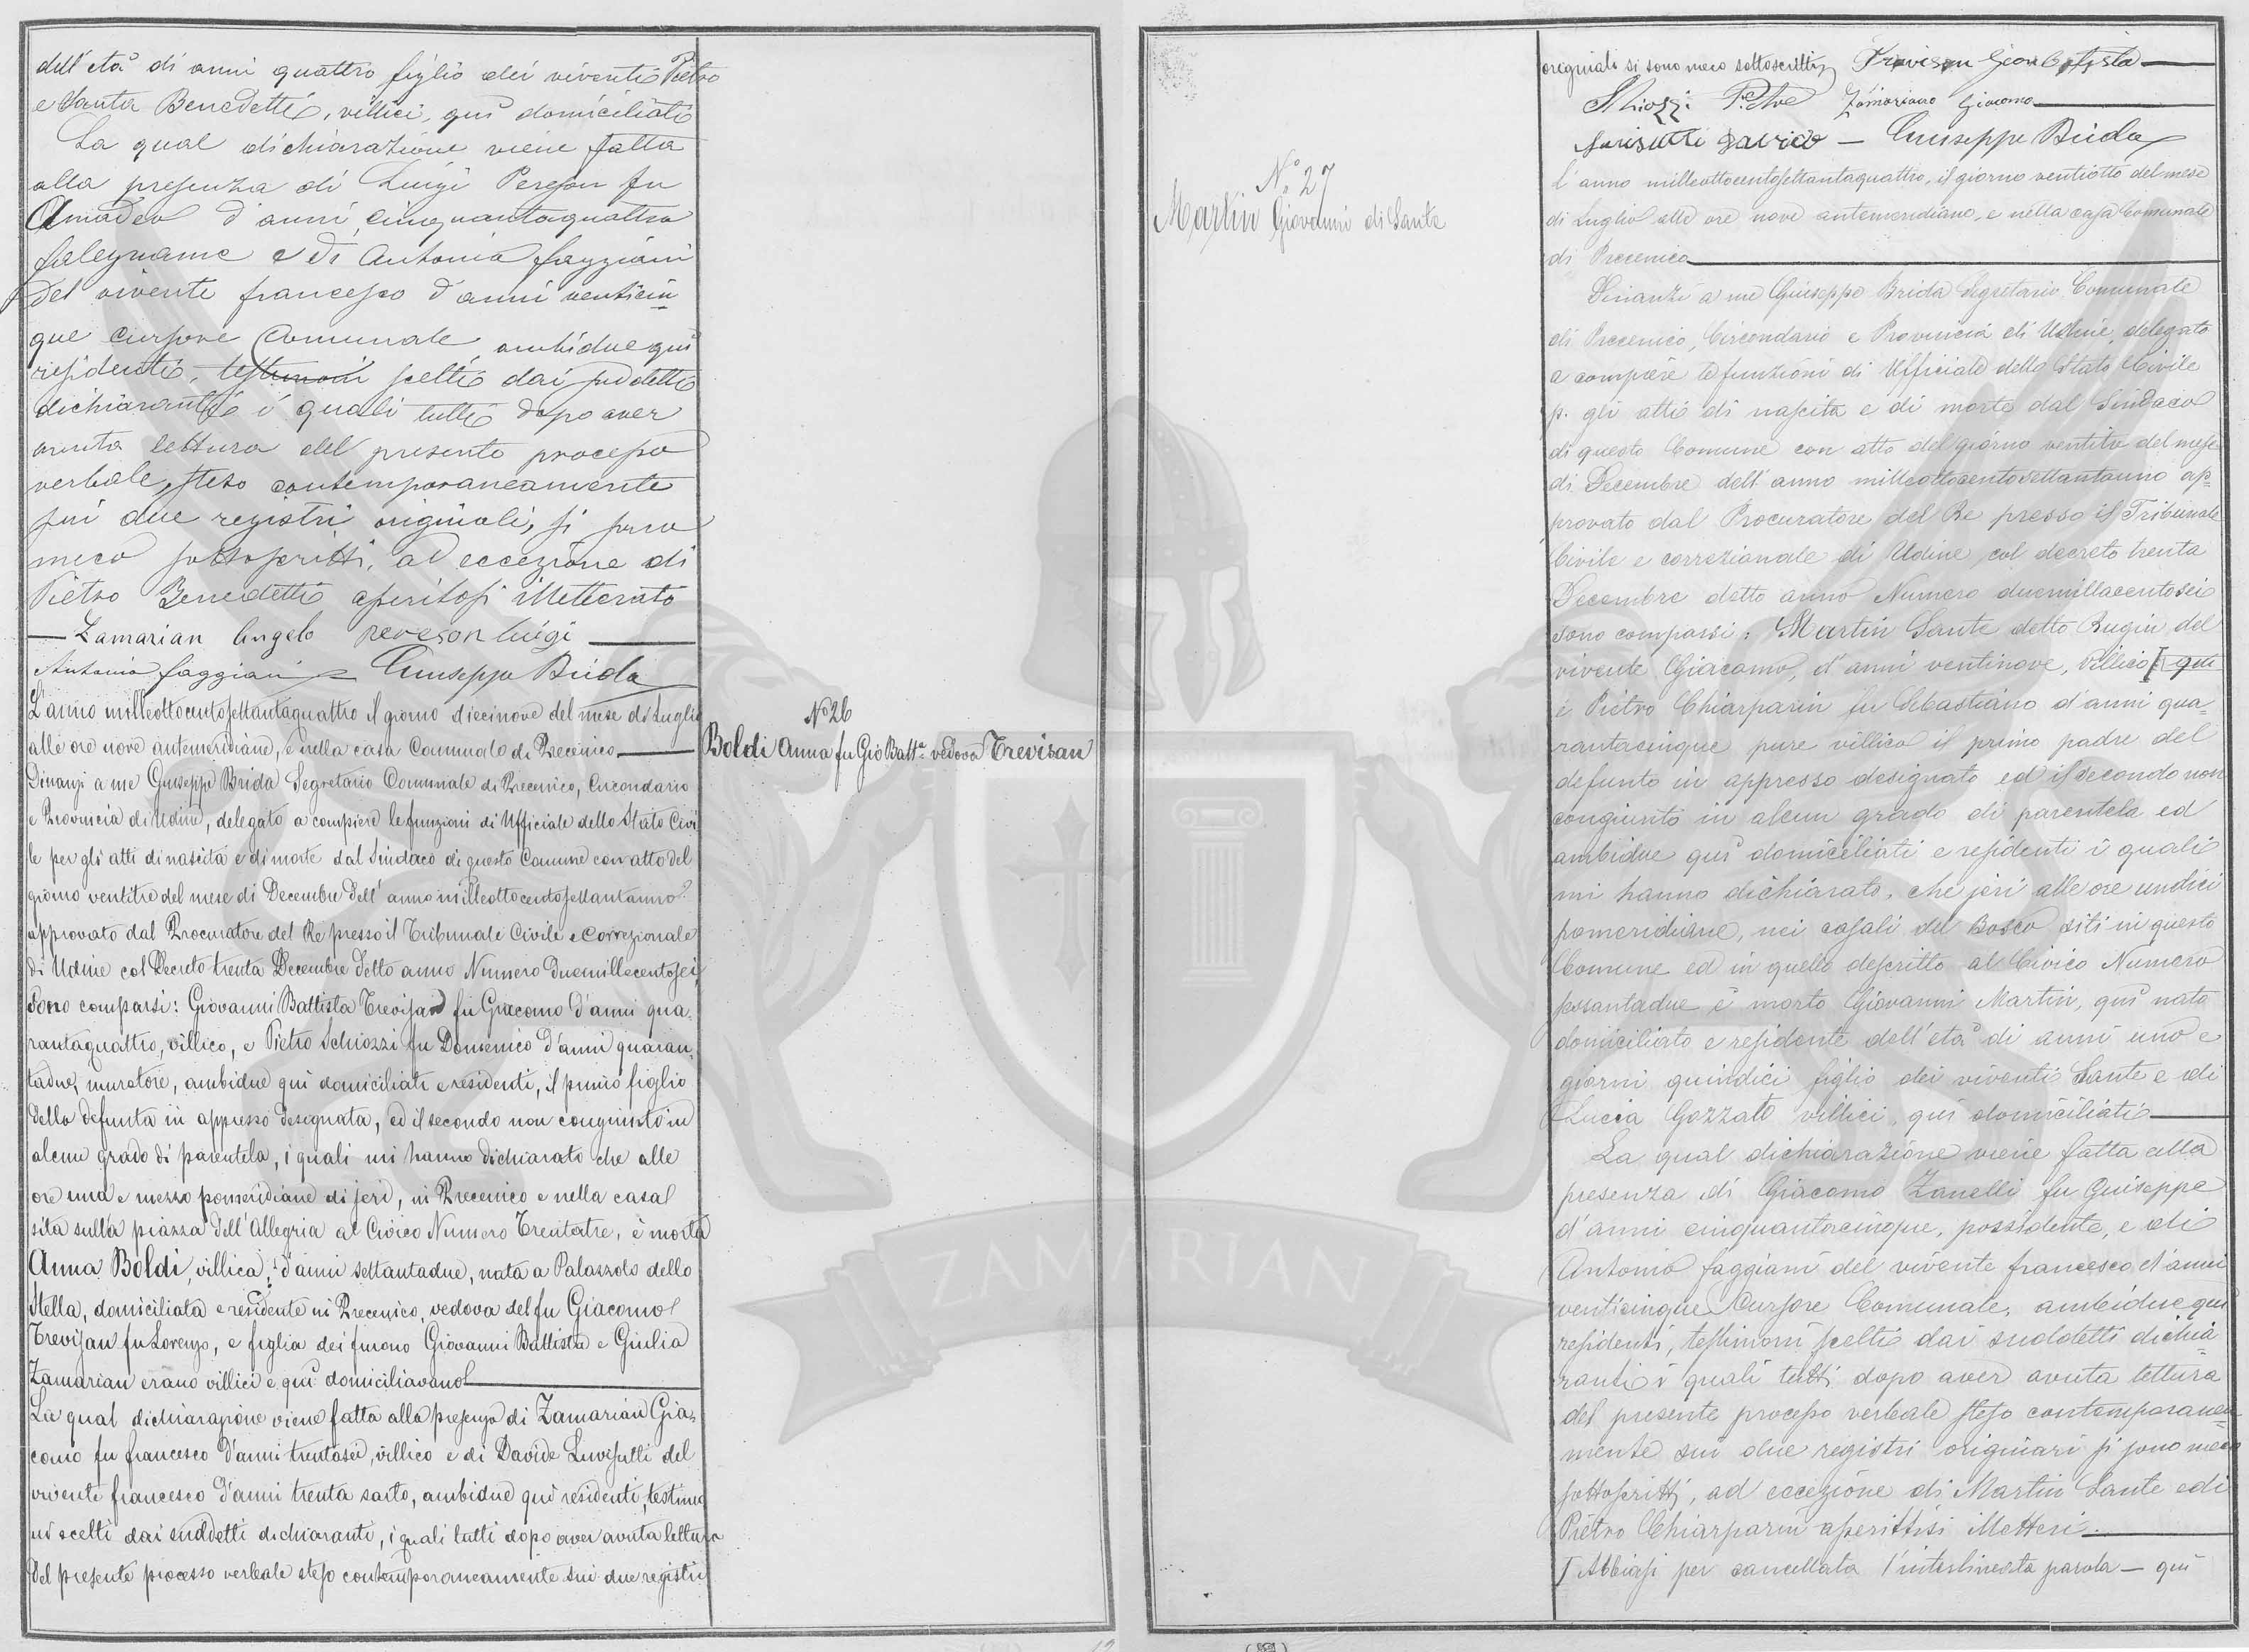 dell'età di anni quattro figlio dei viventi Pietro
e Santa Benedetti, villici, qui domiciliati
La qual dichiarazione viene fatta
alla presenza di Luigi Pereson fu
Amadeo d'anni cinquantaquattro
falegname e di Antonio Faggiani
del vivente Francesco d'anni venticin=
que Cursore Comunale ambidue qui
residenti, testimoni scelti dai suddetti
dichiaranti i quali tutti dopo aver
avuta lettura del presente processo
verbale steso contemporaneamente
sui due registri originali, si sono
meco sottoscritti, ad eccezione di
Pietro Benedetti asseritosi illetterato
— Zamarian Angelo Pereson Luigi —
Antonio Faggiani — Giuseppe Brida
L'anno milleottocentosettantaquattro il giorno diecinove del mese di Luglio
alle ore nove antemeridiane, e nella casa Comunale di Precenico —
Dinanzi a me Giuseppe Brida Segretario Comunale di Precenico, Circondario
e Provincia di Udine, delegato a compiere le funzioni di Ufficiale dello Stato Civi
le per gli atti di nascita e di morte dal Sindaco di questo Comune con atto del
giorno ventitre del mese di Decembre dell'anno milleottocentosettantauno
approvato dal Procuratore del Re presso il Tribunale Civile e Correzionale
di Udine col Decreto trenta Decembre detto anno Numero Duemillecentosei,
sono comparsi: Giovanni Battista Trevisan fu Giacomo d'anni qua-
rantaquattro, villico, e Pietro Schiozzi fu Domenico d'anni quaran-
tadue, muratore, ambidue qui domiciliati e residenti, il primo figlio
della defunta in appresso designata, ed il secondo non congiunto in
alcun grado di parentela, i quali mi hanno dichiarato che alle
ore una e mezzo pomeridiane di jeri, in Precenico e nella casa
sita sulla piazza dell'Allegria al Civico Numero Trentatre, è morta
Anna Boldi, villica, d'anni settantadue, nata a Palazzolo dello
Stella, domiciliata e residente in Precenico, vedova del fu Giacomo
Trevisan fu Lorenzo, e figlia dei furono Giovanni Battista e Giulia
Zamarian erano villici e qui domiciliavano —
La qual dichiarazione viene fatta alla presenza di Zamarian Gia-
como fu Francesco d'anni trentasei, villico e di Davide Luvisutti del
vivente Francesco d'anni trenta sarto, ambidue qui residenti, testimo
ni scelti dai suddetti dichiaranti, i quali tutti dopo aver avuta lettura
del presente processo verbale steso contemporaneamente sui due registri
No 26
Boldi Anna fu Gio Batta vedova Trevisan
originali si sono meco sottoscritti, Trevisan Gion Batista —
Schiozzi Pietro Zamariano Giacomo —
Luvisutti Davide — Giuseppe Brida
No 27
Martin Giovanni di Sante
L'anno milleottocentosettantaquattro, il giorno ventiotto del mese
di Luglio alle ore nove antemeridiane, e nella casa Comunale
di Precenico —
Dinanzi a me Giuseppe Brida Segretario Comunale
di Precenico, Circondario e Provincia di Udine, delegato
a compiere le funzioni di Ufficiale dello Stato Civile
p. gli atti di nascita e di morte dal Sindaco
di questo Comune con atto del giorno ventitre del mese
di Decembre dell'anno milleottocentosettantauno ap=
provato dal Procuratore del Re presso il Tribunale
Civile e correzionale di Udine col decreto trenta
Decembre detto anno Numero duemillacentosei
sono comparsi: Martin Sante detto Rugin del
vivente Giacomo, d'anni ventinove, villico [qui
e Pietro Chiarparin fu Sebastiano d'anni qua-
rantacinque pure villico il primo padre del
defunto in appresso designato ed il secondo non
congiunto in alcun grado di parentela ed
ambidue qui domiciliati e residenti i quali
mi hanno dichiarato, che jeri alle ore undici
pomeridiane, nei casali del Bosco siti in questo
Comune ed in quello descritto al Civico Numero
sessantadue è morto Giovanni Martin, qui nato
domiciliato e residente dell'età di anni uno e
giorni quindici figlio dei viventi Sante e di
Lucia Gozzato villici qui domiciliati —
La qual dichiarazione viene fatta alla
presenza di Giacomo Zanelli fu Guiseppe
d'anni cinquantacinque, possidente, e di
Antonio Faggiani del vivente Francesco d'anni
venticinque Cursore Comunale, ambidue qui
residenti, testimoni scelti dai suddetti dichia=
ranti i quali tutti dopo aver avuta lettura
del presente processo verbale steso contemporanea=
mente sui due registri originari si sono meco
sottoscritti, ad eccezione di Martin Sante e di
Pietro Chiarparin asserittisi illetteri. —
[Abbiasi per cancellata l'interlineata parola — qui
ZAMARIAN